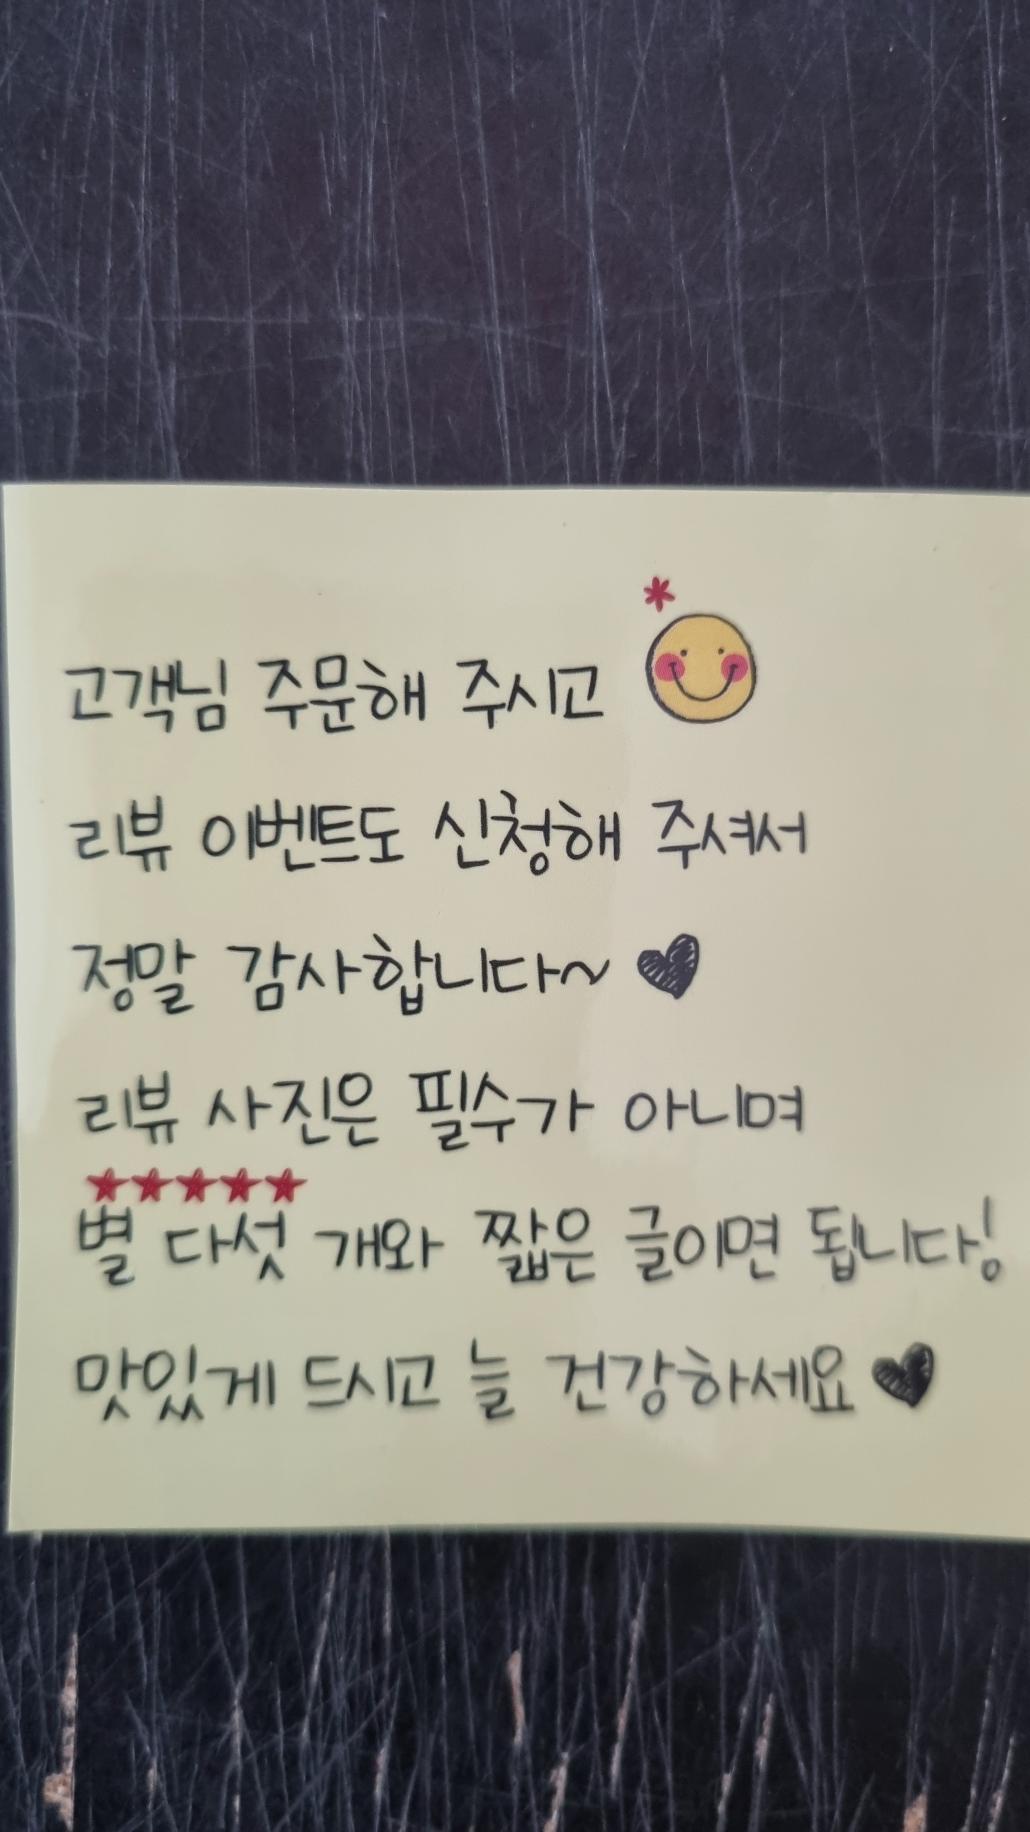 고객님 주문해 주시고
리뷰 이벤트도 신청해 주셔서
정말 감사합니다~ ♥
리뷰 사진은 필수가 아니며
★★★★★
별 다섯 개와 짧은 글이면 됩니다!
맛있게 드시고 늘 건강하세요 ♥